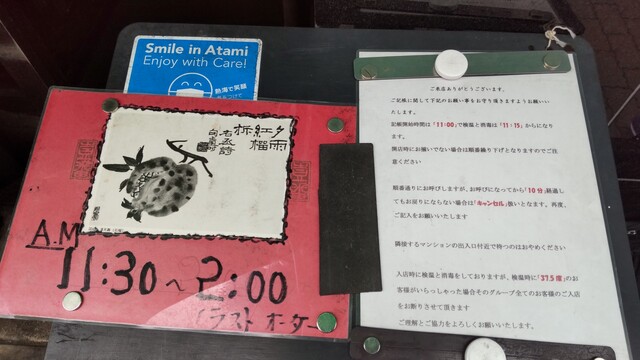 Smile in Atami
Enjoy with Care!
熱海で笑顔
夕雨
紅榴
A.M
11:30～2:00
ラストオーダー
ご来店ありがとうございます。
ご記帳に関して下記のお願い事をお守り頂きますようお願いい
たします。
記帳開始時間は「11:00」で検温と消毒は「11:15」からになり
ます。
開店時にお揃いでない場合は順番繰り下げとなりますのでご注
意ください
順番通りにお呼びしますが、お呼びになってから「10分」経過し
てもお戻りにならない場合は「キャンセル」扱いとなります。再度、
ご記入をお願いいたします
隣接するマンションの出入口付近で待つのはおやめください
入店時に検温と消毒をしておりますが、検温時に「37.5度」のお
客様がいらっしゃった場合そのグループ全てのお客様のご入店
をお断りさせて頂きます
ご理解とご協力をよろしくお願いいたします。